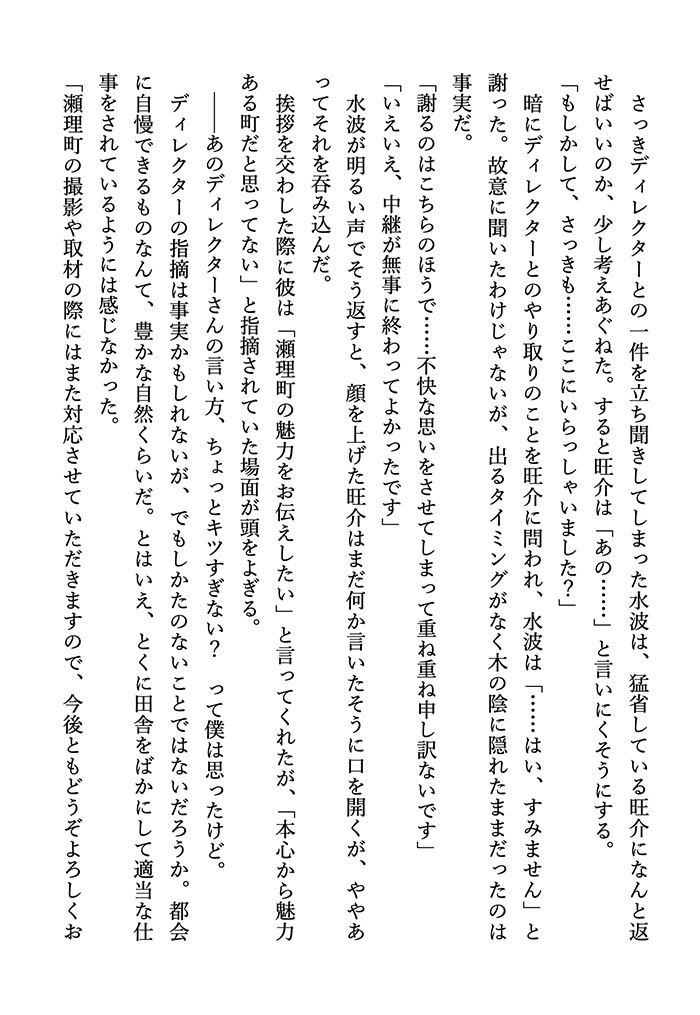 さっきディレクターとの一件を立ち聞きしてしまった水波は、猛省している旺介になんと返
せばいいのか、少し考えあぐねた。すると旺介は「あの……」と言いにくそうにする。
「もしかして、さっきも……ここにいらっしゃいました？」
　暗にディレクターとのやり取りのことを旺介に問われ、水波は「……はい、すみません」と
謝った。故意に聞いたわけじゃないが、出るタイミングがなく木の陰に隠れたままだったのは
事実だ。
「謝るのはこちらのほうで……不快な思いをさせてしまって重ね重ね申し訳ないです」
「いえいえ、中継が無事に終わってよかったです」
　水波が明るい声でそう返すと、顔を上げた旺介はまだ何か言いたそうに口を開くが、ややあ
ってそれを呑み込んだ。
　挨拶を交わした際に彼は「瀬理町の魅力をお伝えしたい」と言ってくれたが、「本心から魅力
ある町だと思ってない」と指摘されていた場面が頭をよぎる。
　――あのディレクターさんの言い方、ちょっとキツすぎない？　って僕は思ったけど。
　ディレクターの指摘は事実かもしれないが、でもしかたのないことではないだろうか。都会
に自慢できるものなんて、豊かな自然くらいだ。とはいえ、とくに田舎をばかにして適当な仕
事をされているようには感じなかった。
「瀬理町の撮影や取材の際にはまた対応させていただきますので、今後ともどうぞよろしくお